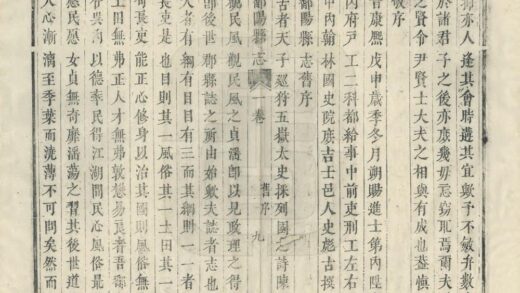 抑亦人逢其會時遭其宜歟予不敏弁數
於諸君子之後亦庶幾毋忝竊恥焉爾夫
之賢令尹賢士大夫之相與有成也蓋慎
敬序
康熙戊申歲季冬月朔賜進士第內陞
內府戶工二科都給事中前吏刑工左右
中內翰林國史院庶吉士邑人史彪古撰
鄱陽縣志舊序
古者天子廵狩五嶽太史採列國之詩陳
鄱陽縣志 一卷 舊序 九
觀民風觀民風之貞滛即以見政理之得
即後世郡縣誌之所由始歟夫誌者志也
者有綱有目目有三而其綱則一一者
長吏是也目則其一風俗其一土田其一
苟長吏能正心修身以治其國則風俗無
土田無弗正人才無弗敦悫易良者吾鄱
以德率民得江湖間民心風俗最
民愿女貞無奇靡滛蕩之習其後世道
人心漸漓至季葉而洸薄不可問矣然而